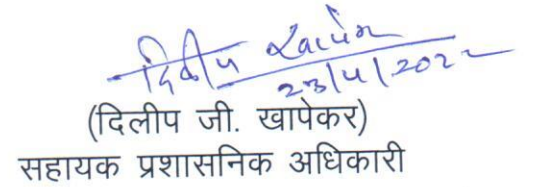 दिलीप
23/5/2022
(दिलीप जी. खापेकर)
सहायक प्रशासनिक अधिकारी